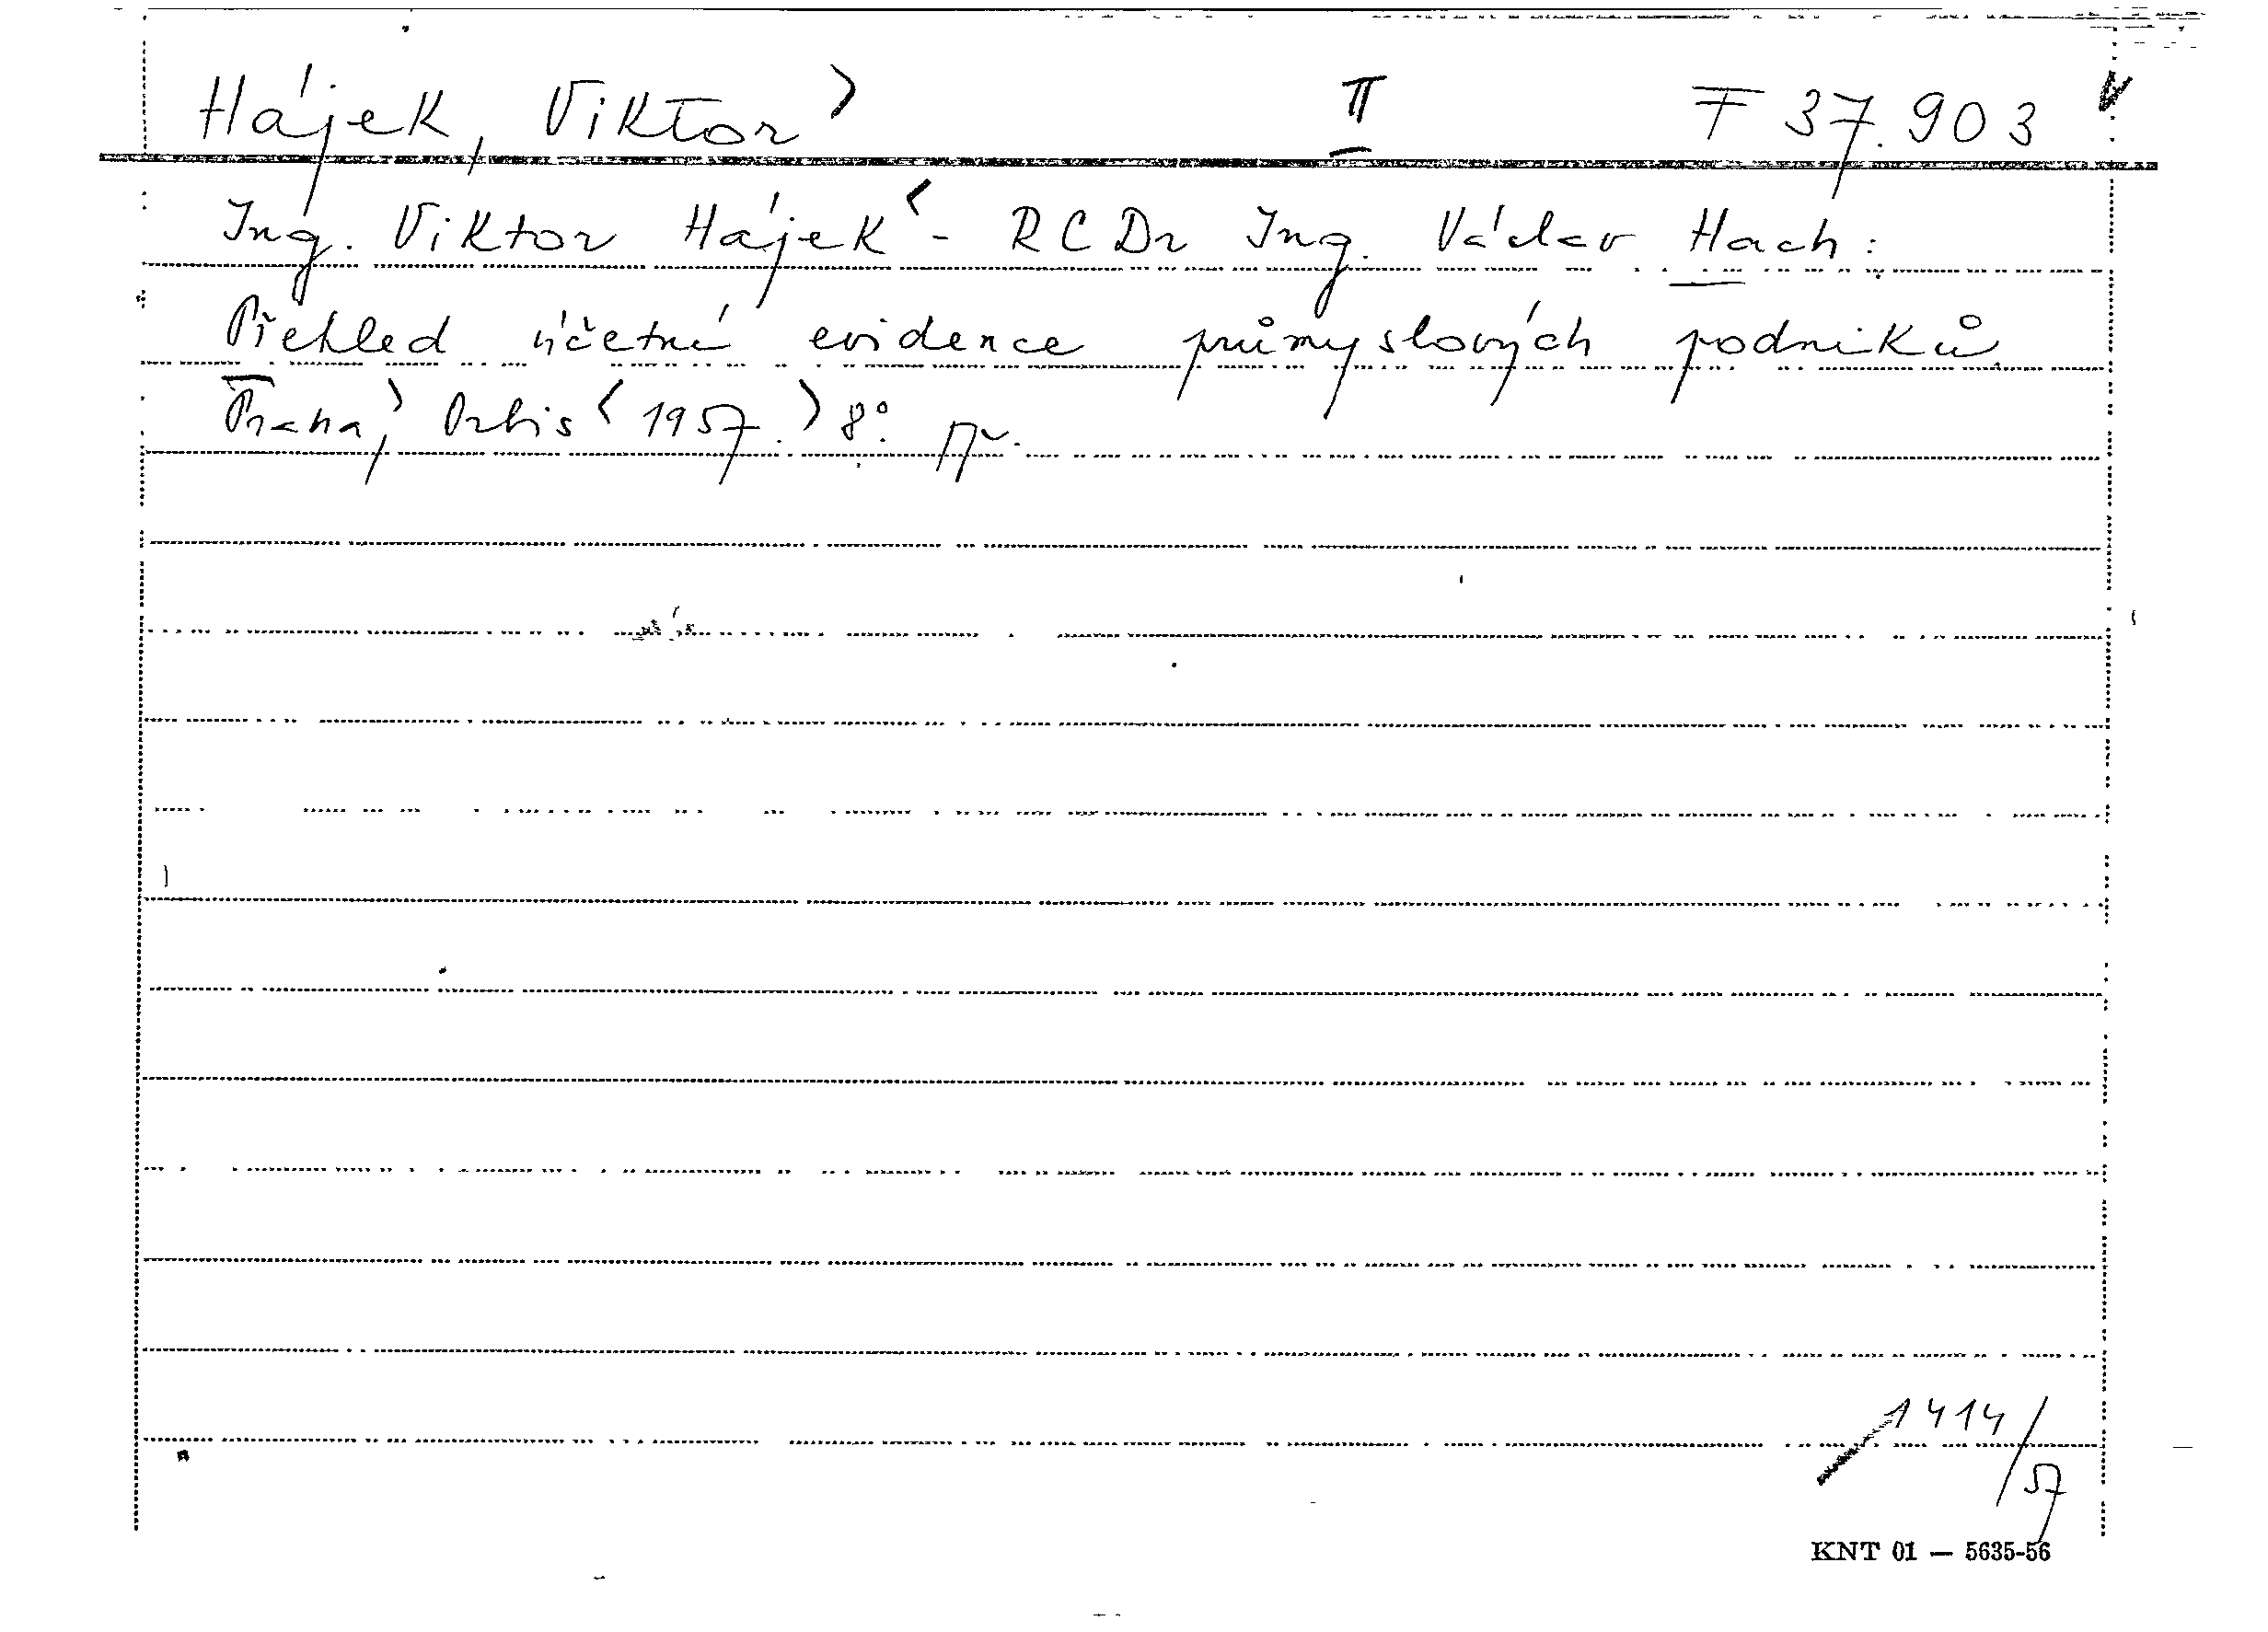 Hájek, Viktor> II F 37.903
Ing. Viktor Hájek< - RCDr Ing. Václav Hach:
Přehled účetní evidence průmyslových podniků.
Praha,> Orbis< 1957.> 8°.
1414/57
KNT 01 — 5635-56